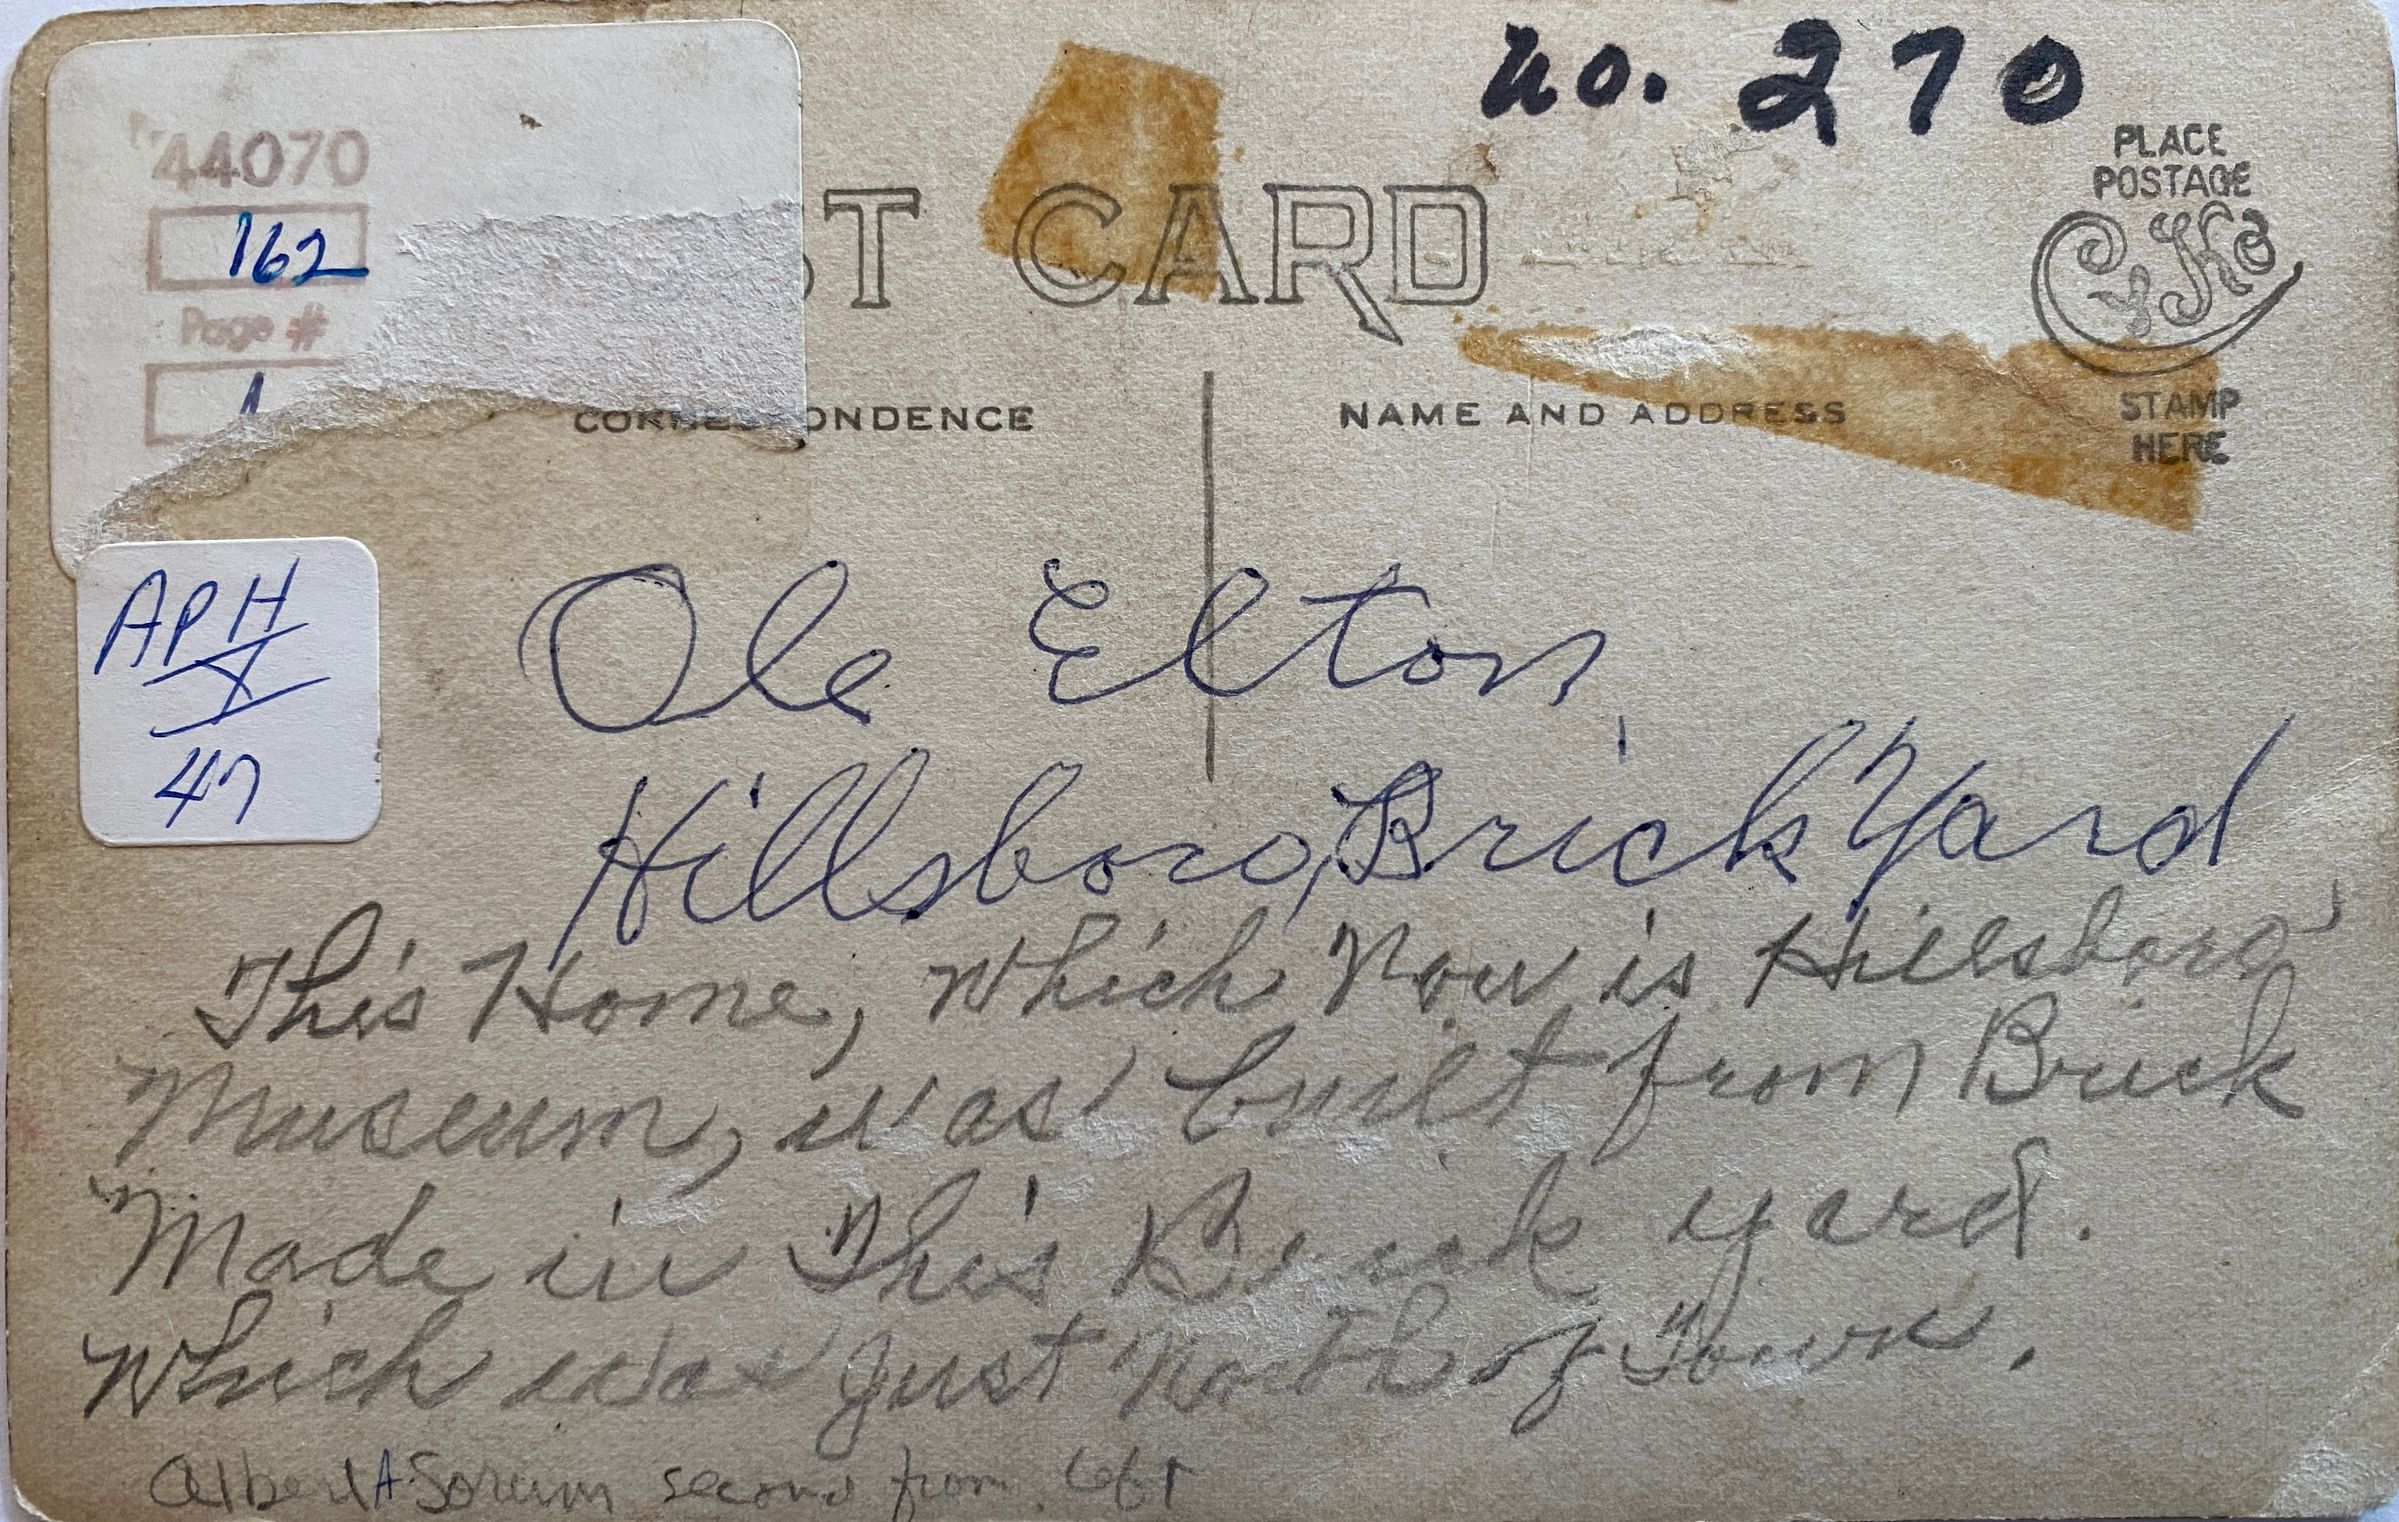 no. 270
44070
162
Page #
ST CARD
PLACE
POSTAGE
CYKO
STAMP
HERE
CORRESPONDENCE
NAME AND ADDRESS
APH
47
Ole Elton,
Hillsboro, Brick Yard
This Home, which Now is Hillsboro
Museum, was built from Brick
Made in This Brick yard.
Which was just North of Town.
Albert A. Sorum second from left